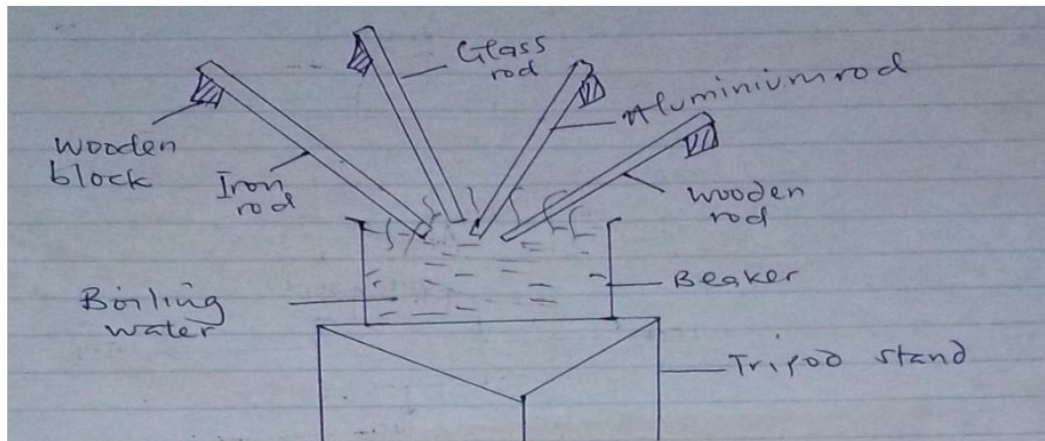 Glass
rod
Aluminium rod
Wooden
block
Iron
rod
Wooden
rod
Boiling
water
Beaker
Tripod stand